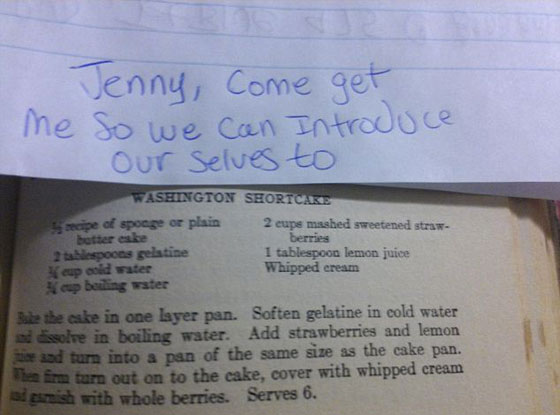 Jenny, Come get
Me So we Can Introduce
Our Selves to
WASHINGTON SHORTCAKE
½ recipe of sponge or plain
butter cake
2 tablespoons gelatine
¼ cup cold water
¾ cup boiling water
2 cups mashed sweetened straw-
berries
1 tablespoon lemon juice
Whipped cream
Bake the cake in one layer pan. Soften gelatine in cold water
and dissolve in boiling water. Add strawberries and lemon
juice and turn into a pan of the same size as the cake pan.
When firm turn out on to the cake, cover with whipped cream
and garnish with whole berries. Serves 6.